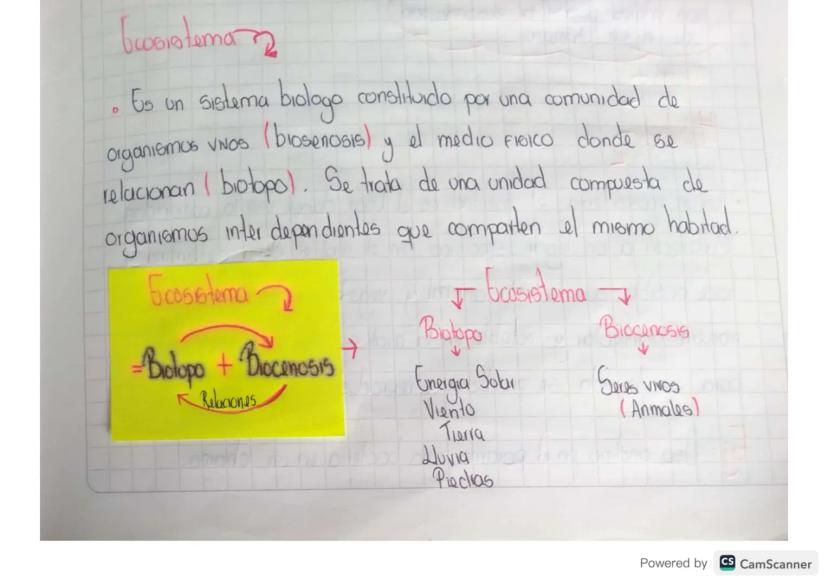 Ecosistema
• Es un sistema biologo constituido por una comunidad de
organismos vivos (biosenosis) y el medio fisico donde se
relacionan (biotopo). Se trata de una unidad compuesta de
organismos inter dependientes que comparten el mismo habitad.
Ecosistema
=Biotopo + Biocenosis
Relaciones
Ecosistema
Biotopo Biocenosis
Energia Solar Seres vivos
Viento (Anmales)
Tierra
Lluvia
Piedras
Powered by CS CamScanner